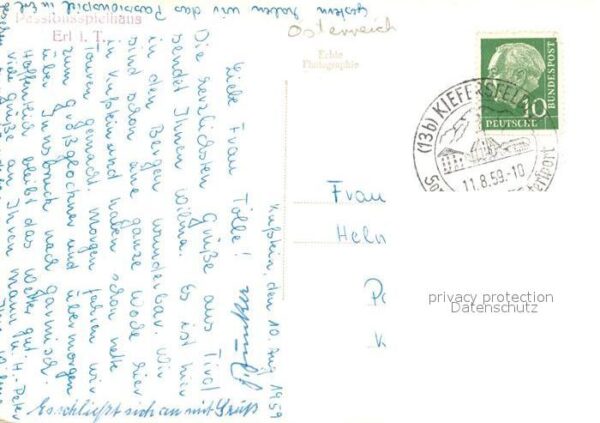 Passionsspielhaus
Erl i. T.
Kufstein, den 10. Aug 1959
Liebe Frau Tölle!
Die herzlichsten Grüße aus Tirol
sendet Ihnen Wilma. Es ist hier
in den Bergen wunderbar. Wir
sind schon eine ganze Woche hier
in Kufstein und haben schon nette
Touren gemacht. Morgen fahren wir
zum Großglockner und übermorgen
über Innsbruck nach Garmisch.
Hoffentlich bleibt das Wetter gut.
viele Grüße Ihren Mann u. H. Peter
Gestern haben wir das Passionsspiel in Erl
Es schließt sich an mit Gruß
Österreich
Echte
Photographie
10
DEUTSCHE
BUNDESPOST
(13b) KIEFERSFELD
11.8.59.-10
Frau
Heln
privacy protection
Datenschutz